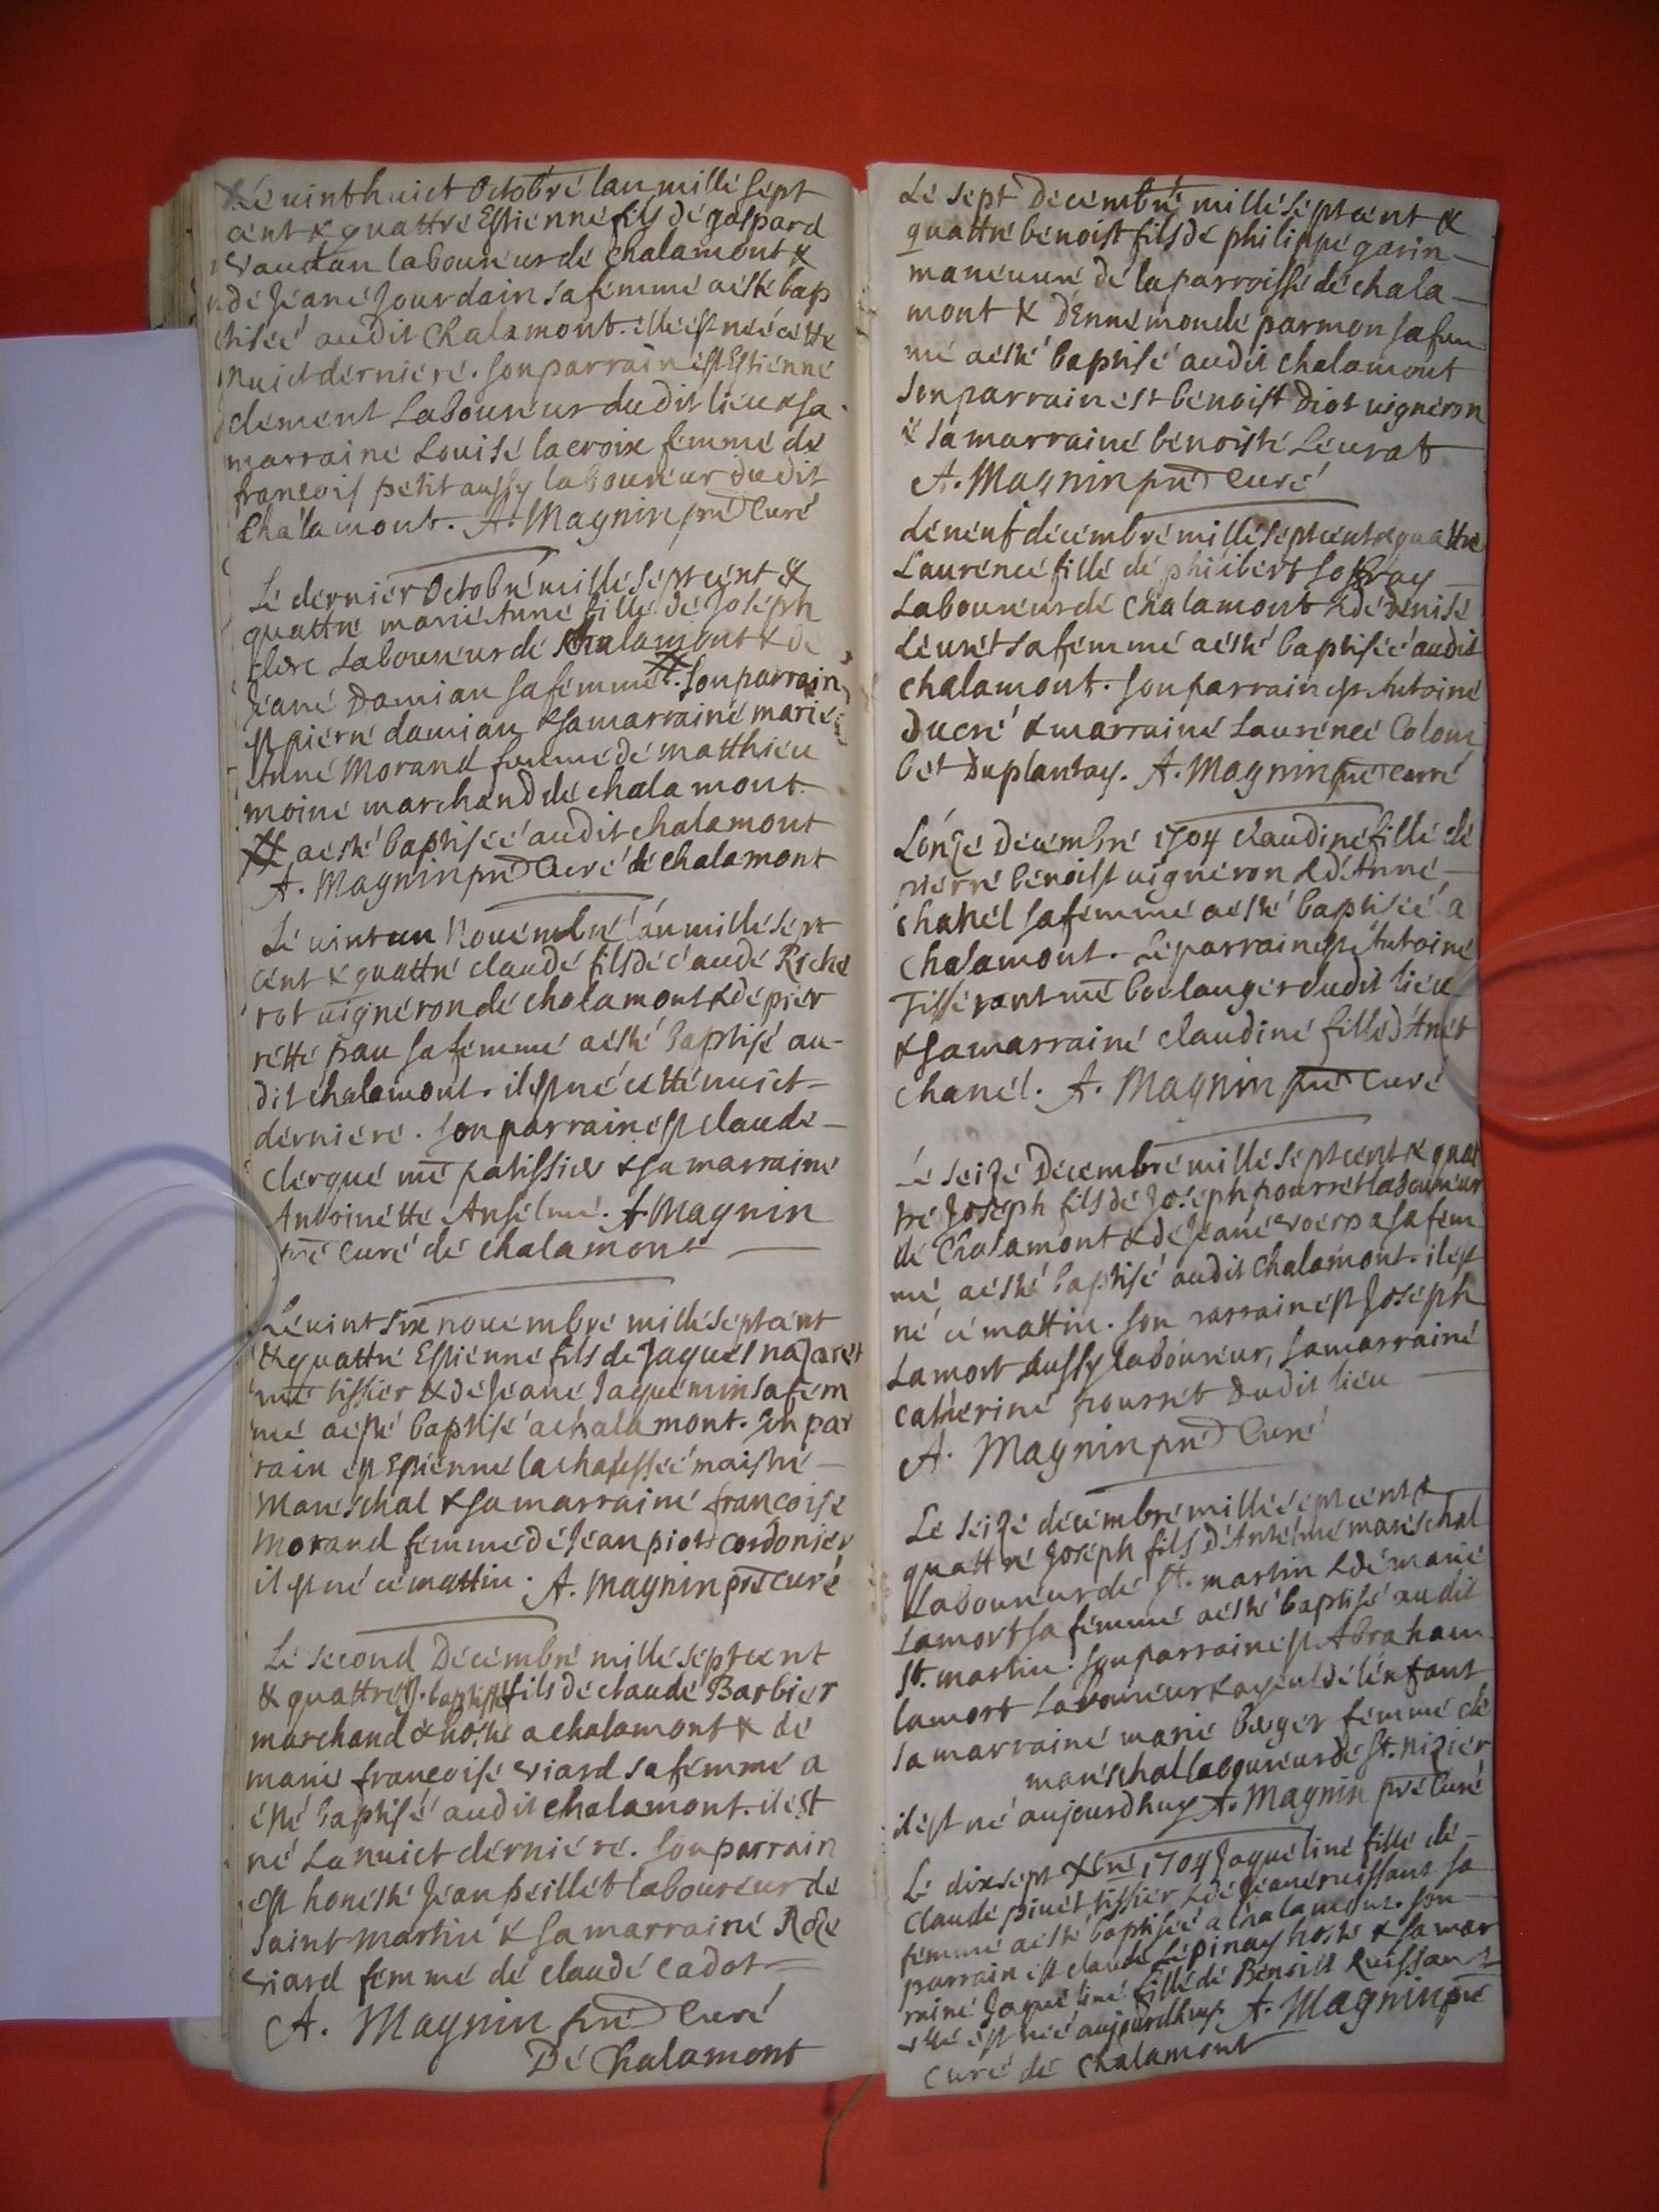 Le vinthuict Octobre lan mille sept
cent & quattre Estienne fils de gaspard
vaudan laboureur de chalamont &
de Jeane Jourdain sa femme a esté bap
tisée audit Chalamont. elle est neé cette
nuict derniere. son parrain est Estienne
clement Laboureur dudit lieu & sa
marraine Louise lacroix femme de
francois petit aussy laboureur dudit
Chalamont. A. Magnin pre Curé
Le dernier Octobre mille sept cent &
quattre marie Anne fille de Joseph
Laboureur de Chalamont & de
Jeane Damian sa femme #. son parrain
est pierre damian & sa marraine marie
Anne Morand femme de matthieu
moine marchand de chalamont.
# a esté baptisée audit chalamont
A. Magnin pre Curé de chalamont
Le vint un Novembre lan mille sept
cent & quattre claude fils de claude Riche
rot vigneron de chalamont & de pier
rette pau sa femme a esté baptisé au-
dit chalamont. il est né cette nuict
derniere. son parrain est claude
clerque me patissier & sa marraine
Antoinette Anselme. A. Magnin
pre curé de chalamont
Le vint six novembre mille sept cent
& quattre Estienne fils de Jaques Nazaret
me tissier & de Jeane Jaquemin sa fem
me a esté baptisé a chalamont. son par
rain est Estienne lachaussée maistre
Mareschal & sa marraine francoise
Morand femme de Jean piot cordonier
il est né ce mattin. A. Magnin pre curé
Le second Decembre mille sept cent
& quattre J. baptiste fils de claude Barbier
marchand & hoste a chalamont & de
marie francoise viard sa femme a
esté baptisé audit chalamont. il est
né La nuict derniere. son parrain
est honeste Jean peillet laboureur de
saint Martin & sa marraine Rose
viard femme de claude cadot
A. Magnin pre Curé
De Chalamont
Le sept Decembre mille sept cent &
quattre benoist fils de philippe garin
maneuvre de la parroisse de chala
mont & dEnnemonde parmon sa fem
me a esté baptisé audit chalamont
son parrain est benoist Diot vigneron
& sa marraine benoiste Leurat
A. Magnin pre Curé
Le neuf decembre mille sept cent & quattre
Laurence fille de philibert soffray
Laboureur de chalamont & de denise
Leuret sa femme a esté baptisée audit
chalamont. son parrain est Antoine
Ducré & marraine Laurence Colom
bet Duplantay. A. Magnin pre curé
Lonze Decembre 1704 claudine fille de
pierre benoist vigneron & dAnne
chanel sa femme a esté baptisée a
chalamont. Le parrain est Antoine
Tisserant me boulanger dudit lieu
& sa marraine claudine fille dAnet
chanel. A. Magnin pre Curé
Le seize Decembre mille sept cent & quat
tre Joseph fils de Joseph pourret laboureur
de Chalamont & de Jeane voerpa sa fem
me a esté baptisé audit chalamont. il est
né ce mattin. son parrain est Joseph
Lamort Aussy laboureur, sa marraine
catherine pourret dudit lieu
A. Magnin pre Curé
Le seize decembre mille sept cent &
quattre Joseph fils dAntelme mareschal
Laboureur de St. martin & de marie
Lamort sa femme a esté baptisé audit
St. martin. son parrain est Abraham
lamort Laboureur & ayeul de lenfant
sa marraine marie berger femme de
mareschal laboureur de St. nizier
il est né aujourdhuy A. Magnin pre Curé
Le dixsept Xbre 1704 Jaqueline fille de
Claude pivet tissier & de Jeane ruissant sa
femme a esté baptisée a chalamont. son
parrain est claude Lépinay hoste & sa mar
raine Jaqueline fille de Benoist Ruissant
elle est née aujourdhuy. A. Magnin pre
curé de chalamont